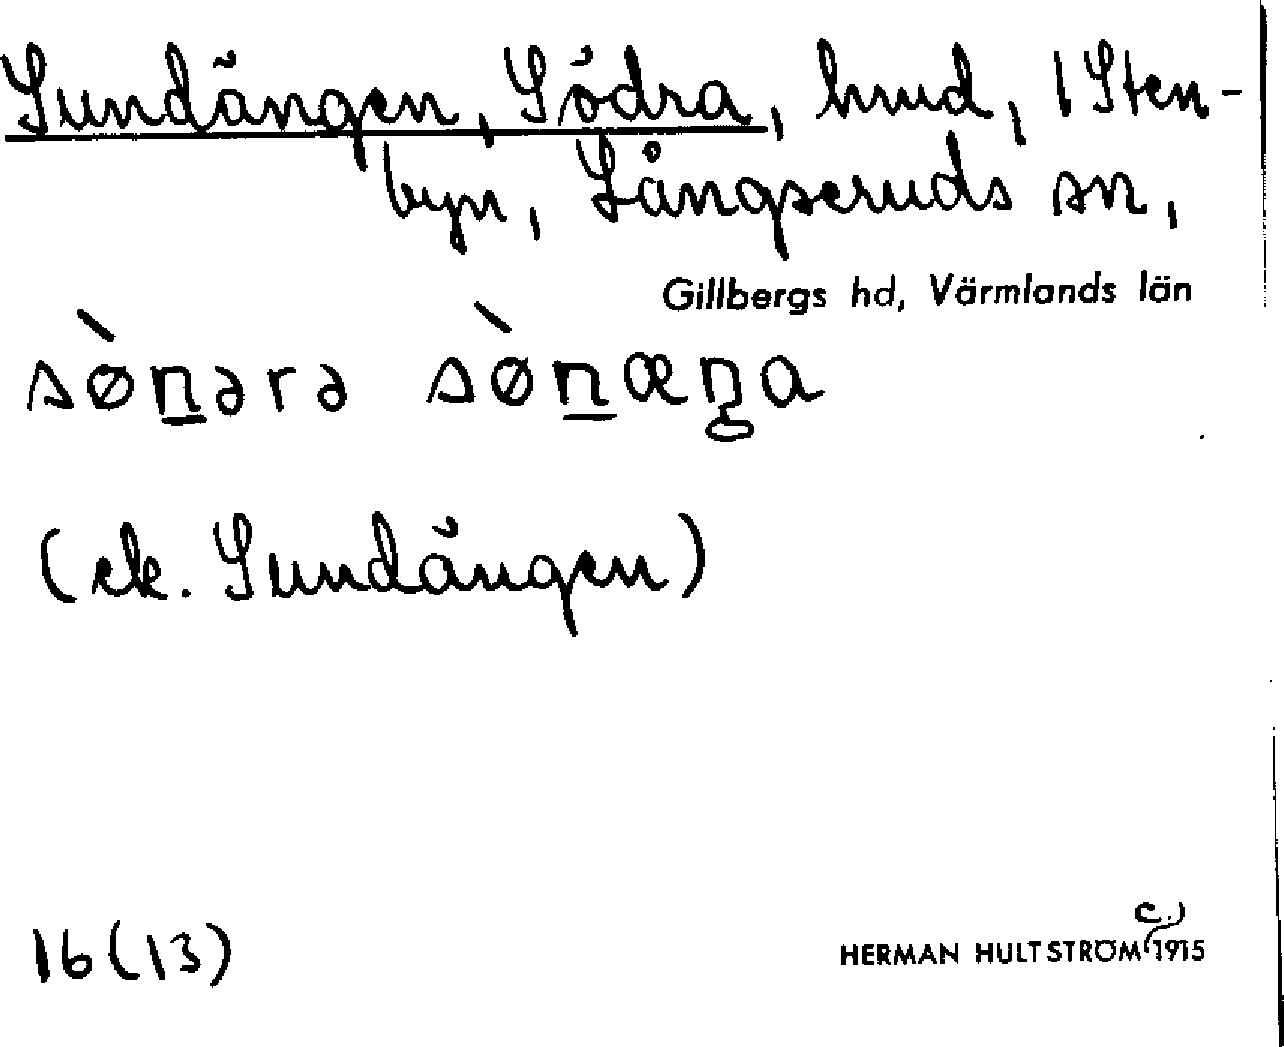 Sundängen, Södra, hmd, 1 Sten-
byn, Långseruds sn,
Gillbergs hd, Värmlands län
sø̀n̲əra sø̀n̲æŋa
(ek. Sundängen)
16 (13)
HERMAN HULTSTRÖM (c.) 1915